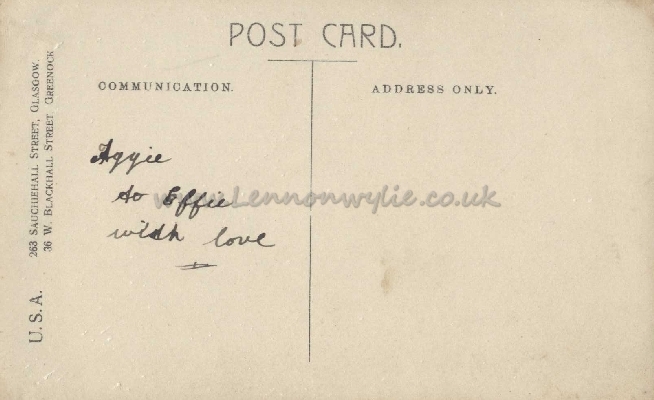 POST CARD.
COMMUNICATION.
ADDRESS ONLY.
Aggie
to Effie
with love
www.Lennonwylie.co.uk
U.S.A.
263 SAUCHIEHALL STREET, GLASGOW.
36 W. BLACKHALL STREET, GREENOCK